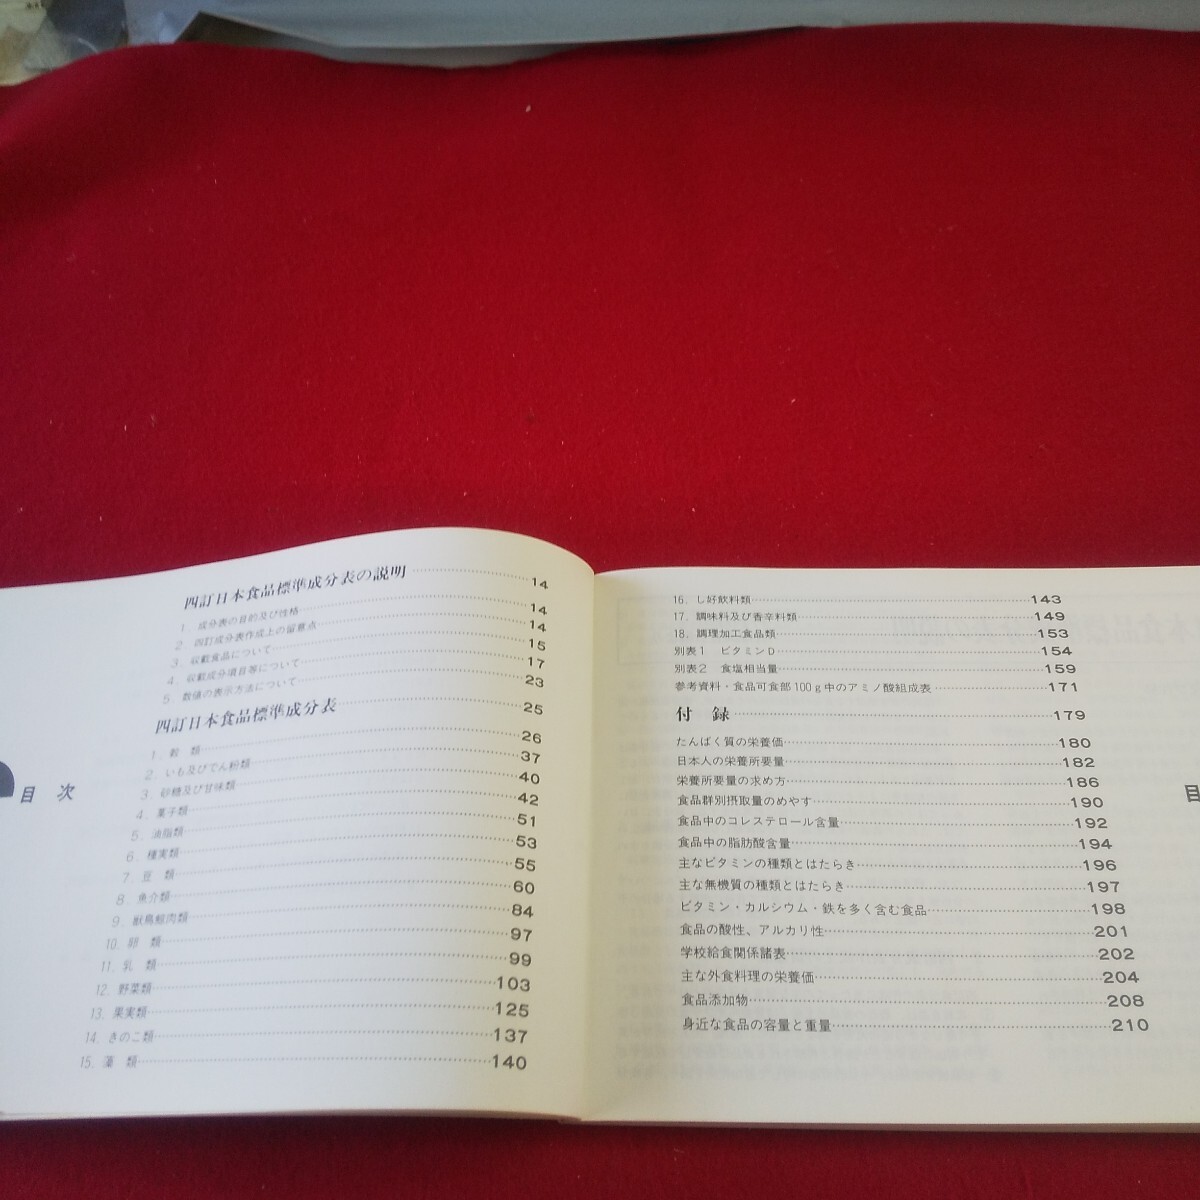 目次
四訂日本食品標準成分表の説明……14
1．成分表の目的及び性格……14
2．四訂成分表作成上の留意点……14
3．収載食品について……15
4．収載成分項目等について……17
5．数値の表示方法について……23
四訂日本食品標準成分表……25
1．穀　類……26
2．いも及びでん粉類……37
3．砂糖及び甘味類……40
4．菓子類……42
5．油脂類……51
6．種実類……53
7．豆　類……55
8．魚介類……60
9．獣鳥鯨肉類……84
10．卵　類……97
11．乳　類……99
12．野菜類……103
13．果実類……125
14．きのこ類……137
15．藻　類……140
16．し好飲料類……143
17．調味料及び香辛料類……149
18．調理加工食品類……153
別表1　ビタミンD……154
別表2　食塩相当量……159
参考資料・食品可食部100g中のアミノ酸組成表……171
付　録……179
たんぱく質の栄養価……180
日本人の栄養所要量……182
栄養所要量の求め方……186
食品群別摂取量のめやす……190
食品中のコレステロール含量……192
食品中の脂肪酸含量……194
主なビタミンの種類とはたらき……196
主な無機質の種類とはたらき……197
ビタミン・カルシウム・鉄を多く含む食品……198
食品の酸性、アルカリ性……201
学校給食関係諸表……202
主な外食料理の栄養価……204
食品添加物……208
身近な食品の容量と重量……210
目